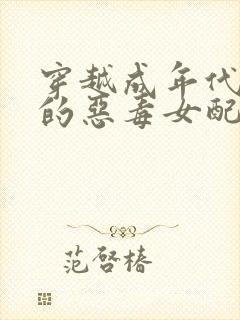 穿越成年代
的恶毒女配
范啓椿